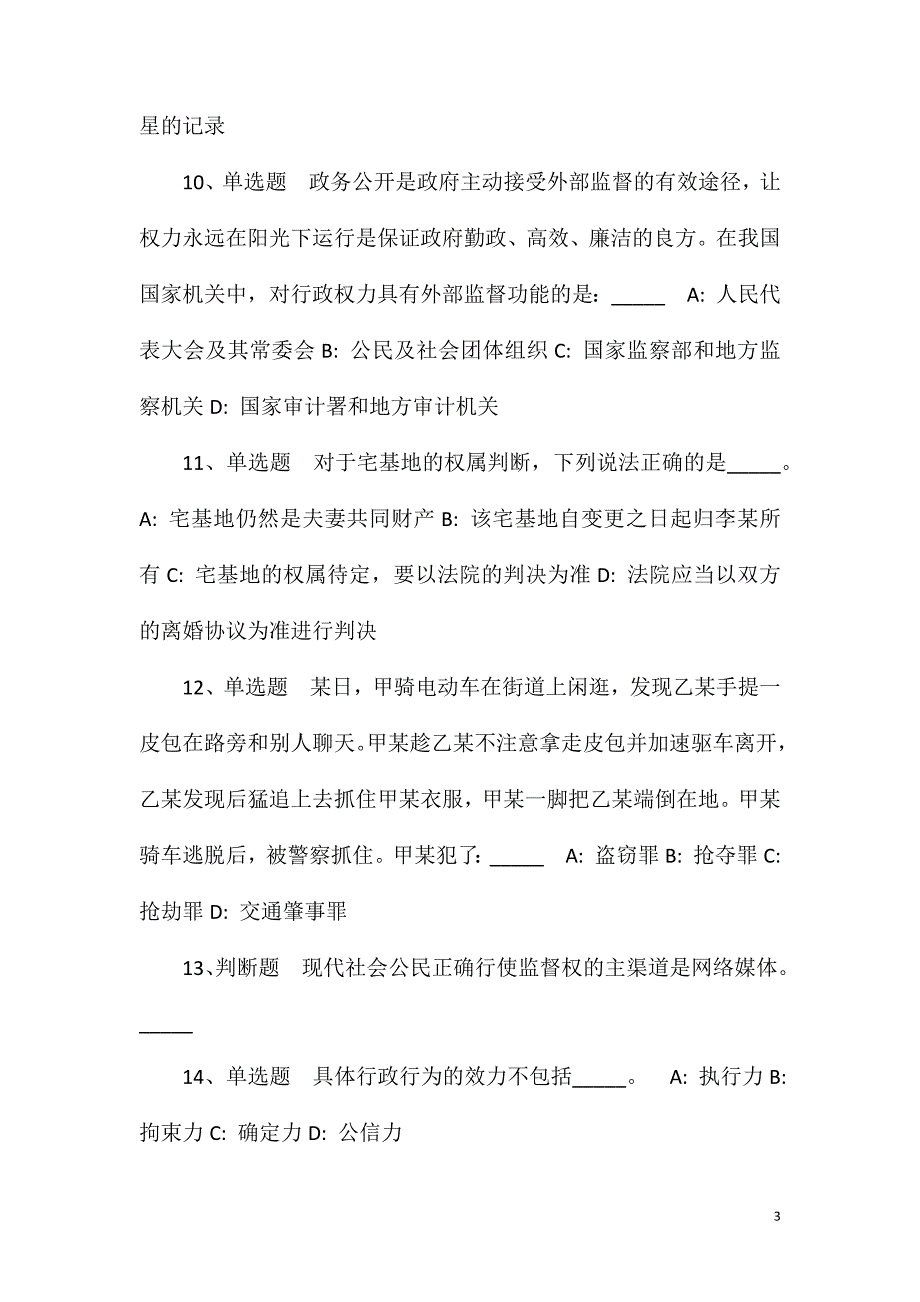 星的记录
10、单选题　政务公开是政府主动接受外部监督的有效途径，让
权力永远在阳光下运行是保证政府勤政、高效、廉洁的良方。在我国
国家机关中，对行政权力具有外部监督功能的是：_____　A: 人民代
表大会及其常委会B: 公民及社会团体组织C: 国家监察部和地方监
察机关D: 国家审计署和地方审计机关
11、单选题　对于宅基地的权属判断，下列说法正确的是_____。
A: 宅基地仍然是夫妻共同财产B: 该宅基地自变更之日起归李某所
有C: 宅基地的权属待定，要以法院的判决为准D: 法院应当以双方
的离婚协议为准进行判决
12、单选题　某日，甲骑电动车在街道上闲逛，发现乙某手提一
皮包在路旁和别人聊天。甲某趁乙某不注意拿走皮包并加速驱车离开，
乙某发现后猛追上去抓住甲某衣服，甲某一脚把乙某端倒在地。甲某
骑车逃脱后，被警察抓住。甲某犯了：_____　A: 盗窃罪B: 抢夺罪C:
抢劫罪D: 交通肇事罪
13、判断题　现代社会公民正确行使监督权的主渠道是网络媒体。
_____
14、单选题　具体行政行为的效力不包括_____。　A: 执行力B:
拘束力C: 确定力D: 公信力
3